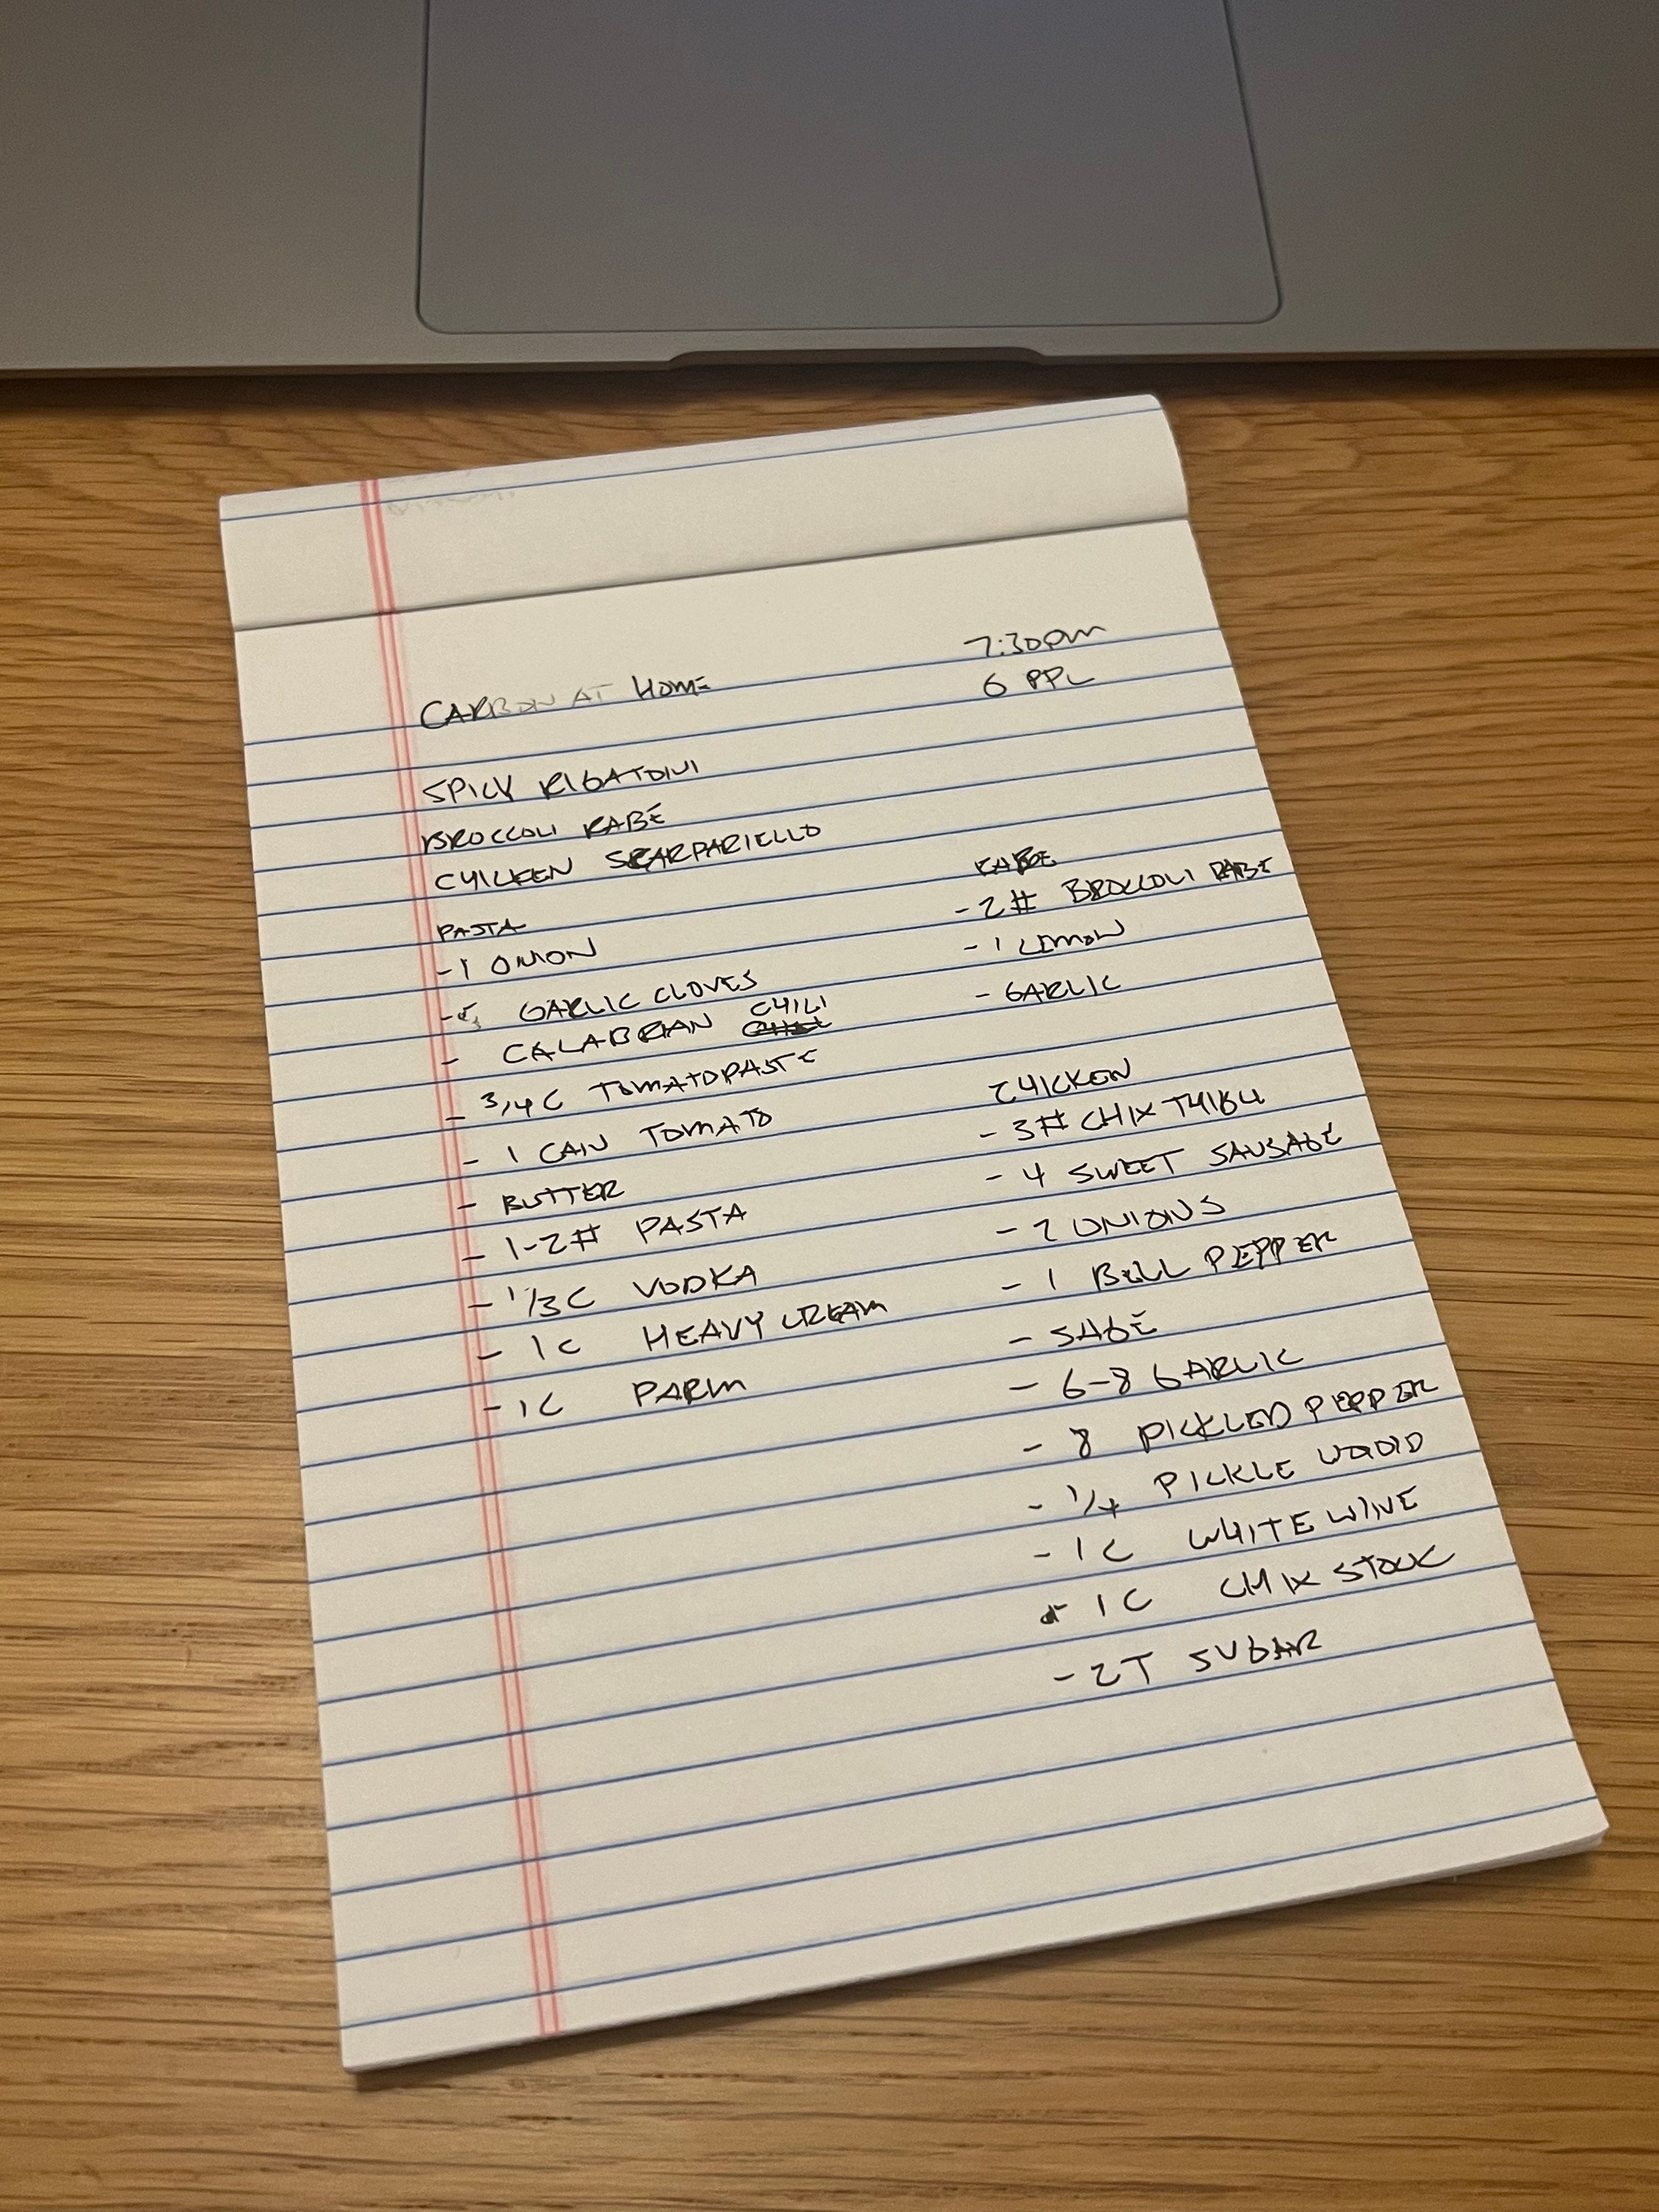 CARBON AT HOME
7:30pm
6 PPL
SPICY RIGATONI
BROCCOLI RABE
CHICKEN SCARPARIELLO
PASTA
- 1 ONION
- 5 GARLIC CLOVES
- CALABRIAN CHILI
- 3/4 C TOMATO PASTE
- 1 CAN TOMATO
- BUTTER
- 1-2# PASTA
- 1/3 C VODKA
- 1 C HEAVY CREAM
- 1 C PARM
RABE
- 2# BROCCOLI RABE
- 1 LEMON
- GARLIC
CHICKEN
- 3# CHIX THIGH
- 4 SWEET SAUSAGE
- 2 ONIONS
- 1 BELL PEPPER
- SAGE
- 6-8 GARLIC
- 8 PICKLED PEPPER
- 1/4 PICKLE LIQUID
- 1 C WHITE WINE
- 1 C CHIX STOCK
- 2T SUGAR